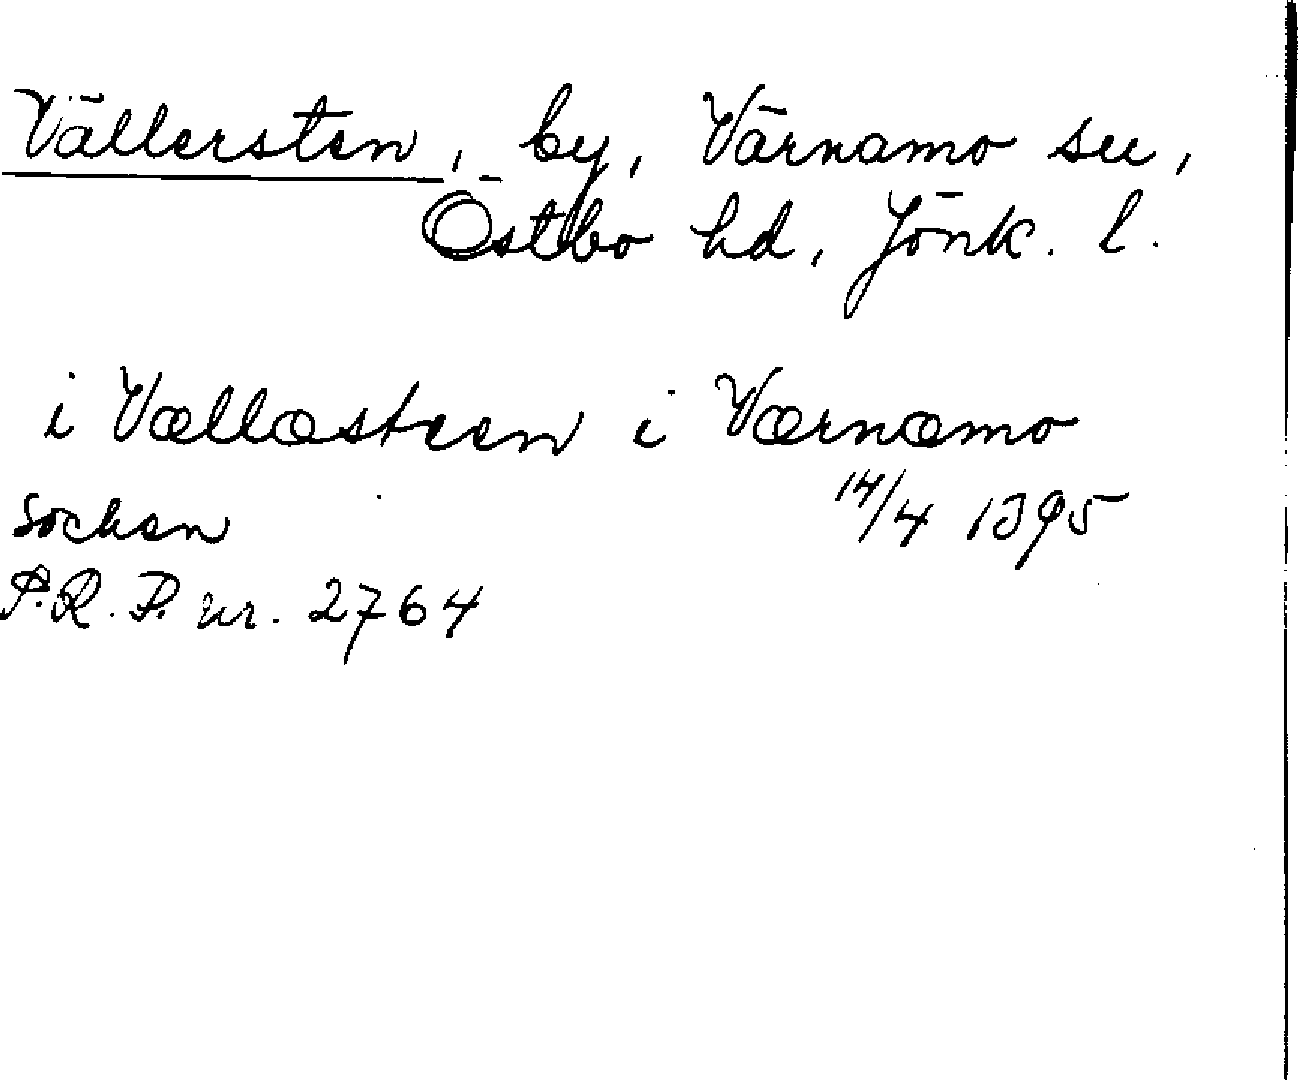 Vällersten, by, Värnamo sn,
Östbo hd, Jönk. l.
i Vællæsteen i Værnæmo
sochen 14/4 1395
P.R.P. nr. 2764